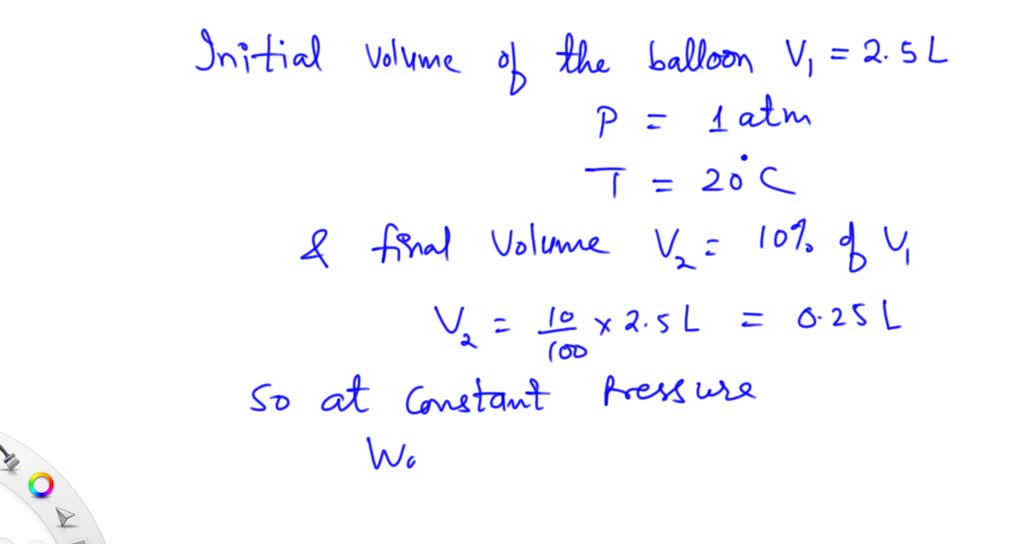 Initial Volume of the balloon V₁ = 2.5 L
P = 1 atm
T = 20°C
& final Volume V₂ = 10% of V₁
V₂ = 10/100 × 2.5 L = 0.25 L
So at Constant Pressure
Wo